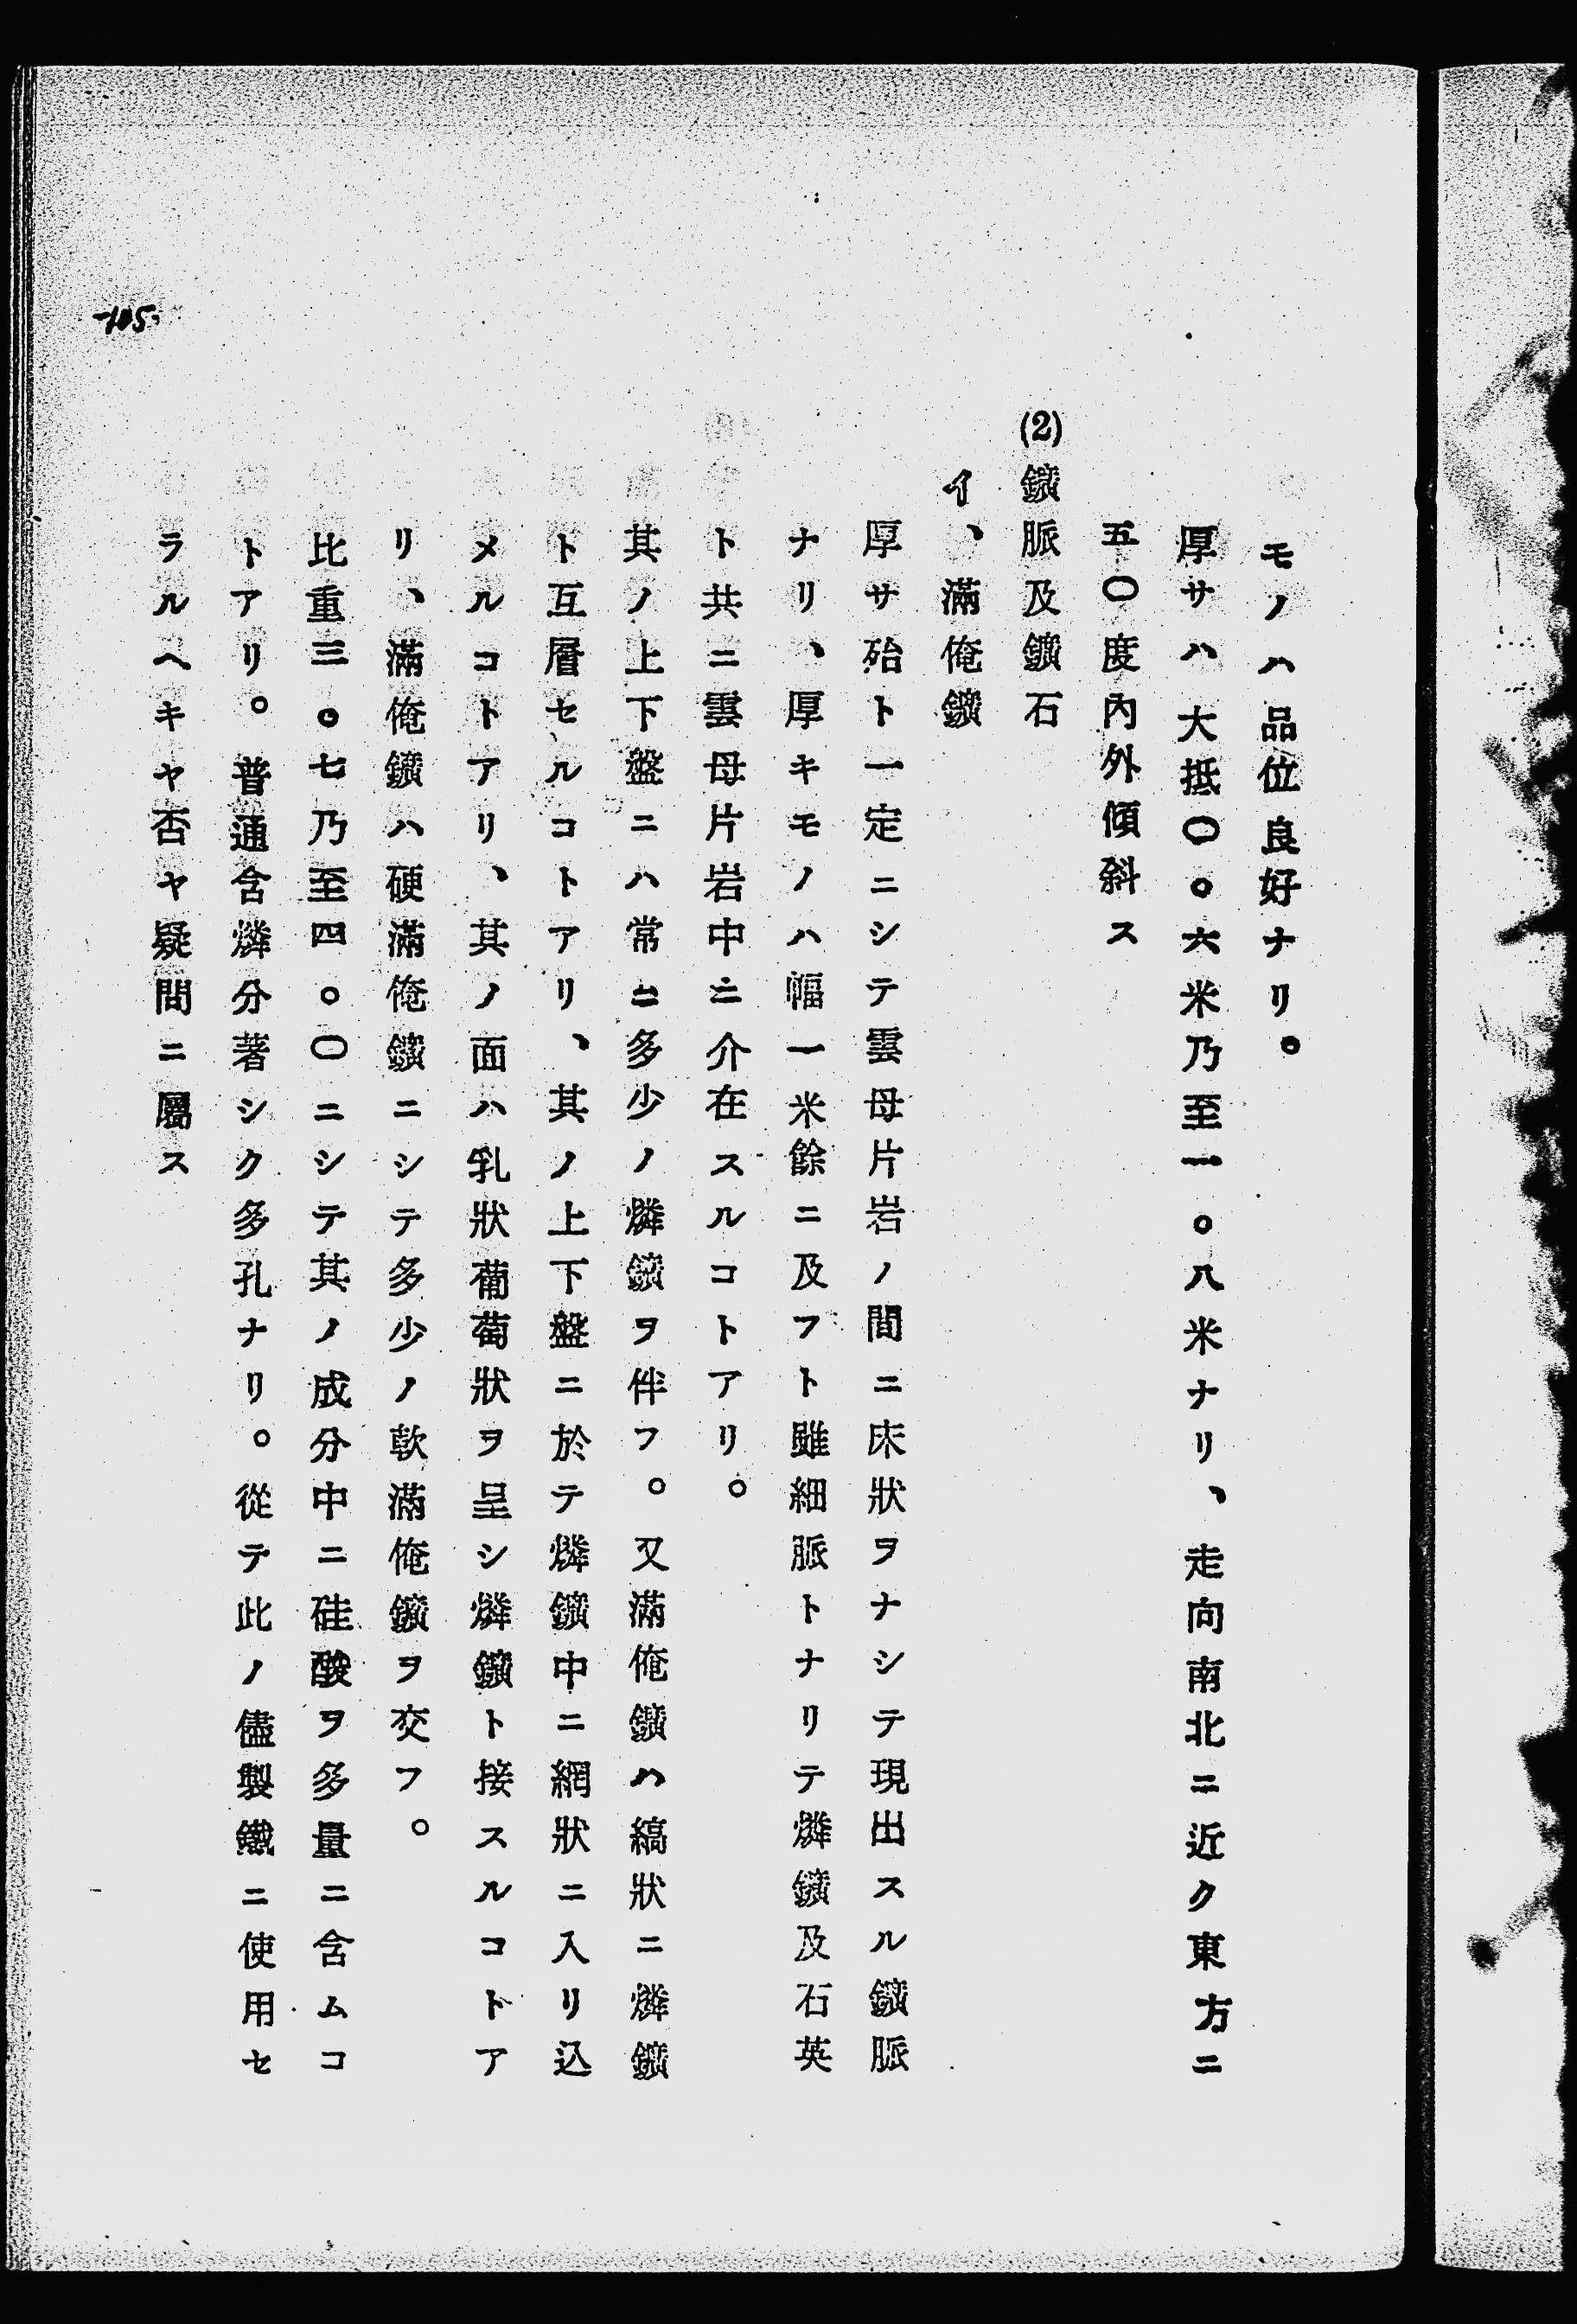 モノハ品位良好ナリ。
厚サハ大抵〇。六米乃至一。八米ナリ、走向南北ニ近ク東方ニ
五〇度內外傾斜ス
(2)鑛脈及鑛石
イ、滿俺鑛
厚サ殆ト一定ニシテ雲母片岩ノ間ニ床狀ヲナシテ現出スル鑛脈
ナリ、厚キモノハ幅一米餘ニ及フト雖細脈トナリテ燐鑛及石英
ト共ニ雲母片岩中ニ介在スルコトアリ。
其ノ上下盤ニハ常ニ多少ノ燐鑛ヲ伴フ。又滿俺鑛ハ縞狀ニ燐鑛
ト互層セルコトアリ、其ノ上下盤ニ於テ燐鑛中ニ網狀ニ入リ込
メルコトアリ、其ノ面ハ乳狀葡萄狀ヲ呈シ燐鑛ト接スルコトア
リ、滿俺鑛ハ硬滿俺鑛ニシテ多少ノ軟滿俺鑛ヲ交フ。
比重三。七乃至四。〇ニシテ其ノ成分中ニ硅酸ヲ多量ニ含ムコ
トアリ。普通含燐分著シク多孔ナリ。從テ此ノ儘製鐵ニ使用セ
ラルヘキヤ否ヤ疑問ニ屬ス
-105-